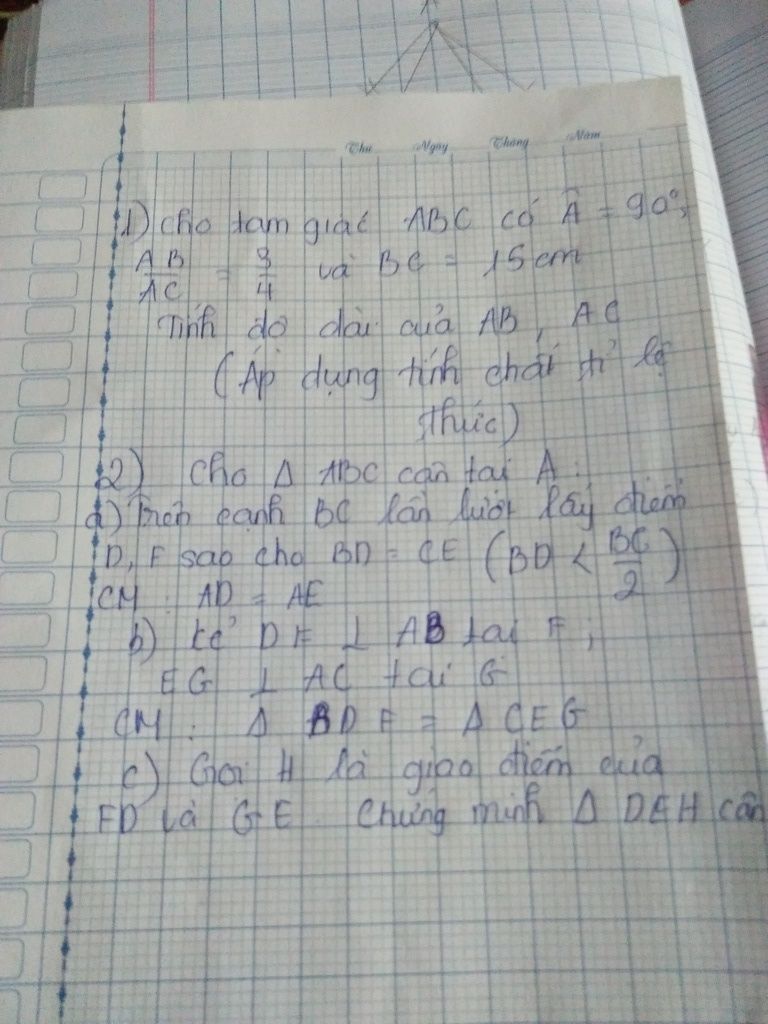 Thứ Ngày Tháng Năm
1) Cho tam giác ABC có Â = 90°,
AB/AC = 3/4 và BC = 15cm
Tính độ dài của AB, AC
(Áp dụng tính chất tỉ lệ
thức)
2) Cho Δ ABC cân tại A :
a) Trên cạnh BC lần lượt lấy điểm
D, E sao cho BD = CE (BD < BC/2)
CM : AD = AE
b) kẻ DF ⊥ AB tại F ;
EG ⊥ AC tại G
CM : Δ BDF = Δ CEG
c) Gọi H là giao điểm của
FD và GE. Chứng minh Δ DEH cân